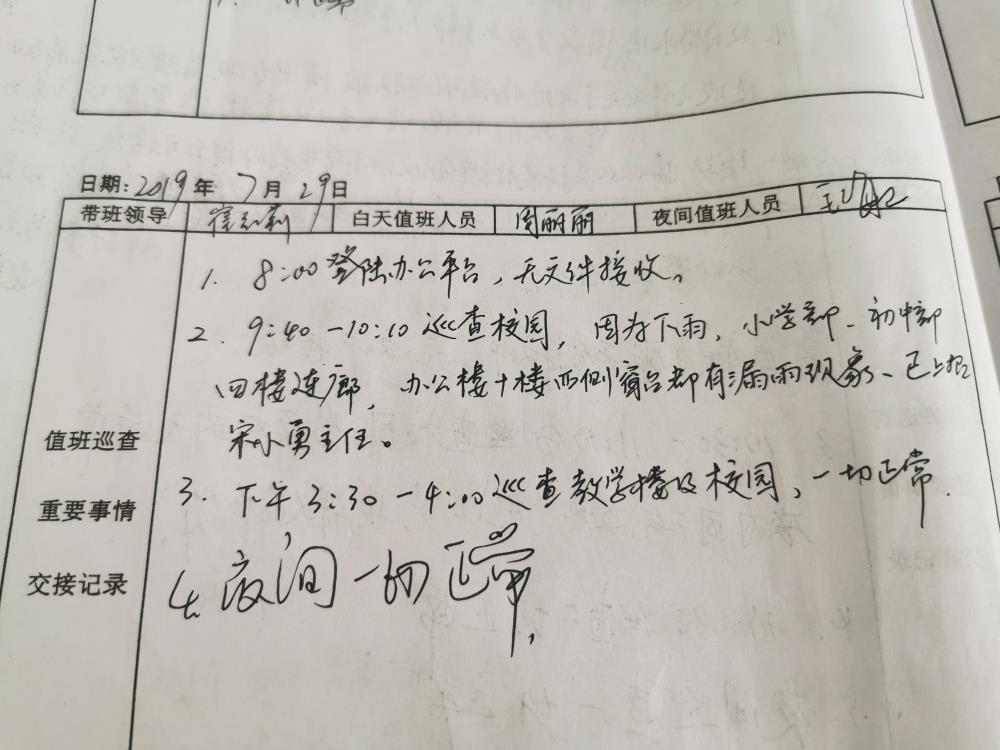 日期:2019年7月29日
带班领导 崔红莉 白天值班人员 周丽丽 夜间值班人员
1. 8:00登陆办公平台，无文件接收。
2. 9:40-10:10巡查校园，因为下雨，小学部、初中部
四楼连廊，办公楼十楼西侧窗台都有漏雨现象、已上报
宋小勇主任。
值班巡查
3. 下午3:30-4:00巡查教学楼及校园、一切正常.
重要事情
4. 夜间一切正常.
交接记录